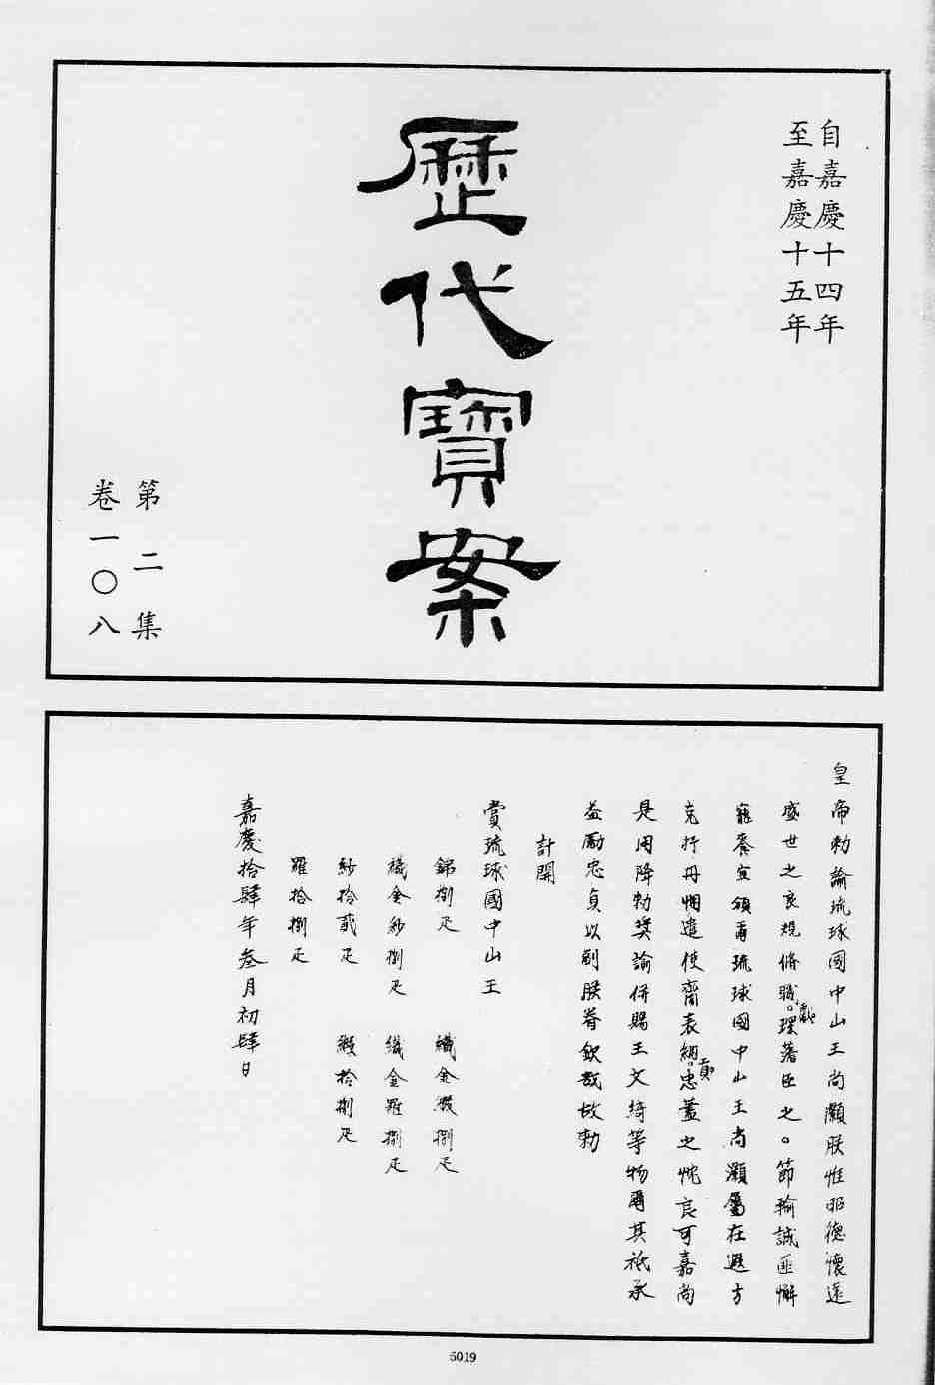 自嘉慶十四年
至嘉慶十五年
歷代寶案
第二集
卷一〇八
皇帝勅諭琉球國中山王尚灝朕惟昭德懷遠
盛世之良規修職。獻琛蕃臣之。節輸誠匪懈
寵養宜頒爾琉球國中山王尚灝屬在遐方
克抒丹悃遣使齎表納。貢忠藎之忱良可嘉尚
是用降勅獎諭併賜王文綺等物爾其祗承
益勵忠貞以副朕眷欽哉故勅
計開
賞琉球國中山王
錦捌疋 織金緞捌疋
織金紗捌疋 織金羅捌疋
紗拾貳疋 緞拾捌疋
羅拾捌疋
嘉慶拾肆年叁月初肆日
5019